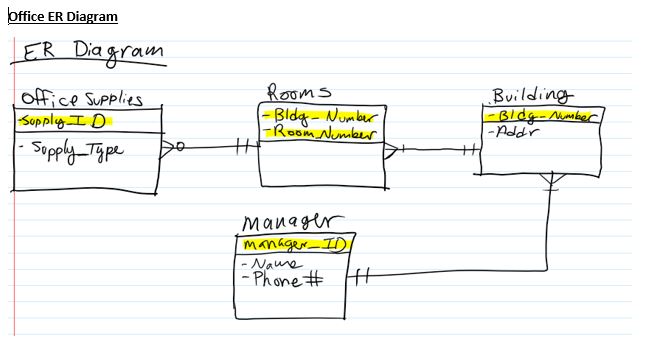 Office ER Diagram
ER Diagram
Office Supplies
-Supply_ID
- Supply_Type
Rooms
-Bldg_Number
-Room_Number
Building
-Bldg_Number
-Addr
Manager
Manager_ID
-Name
-Phone#